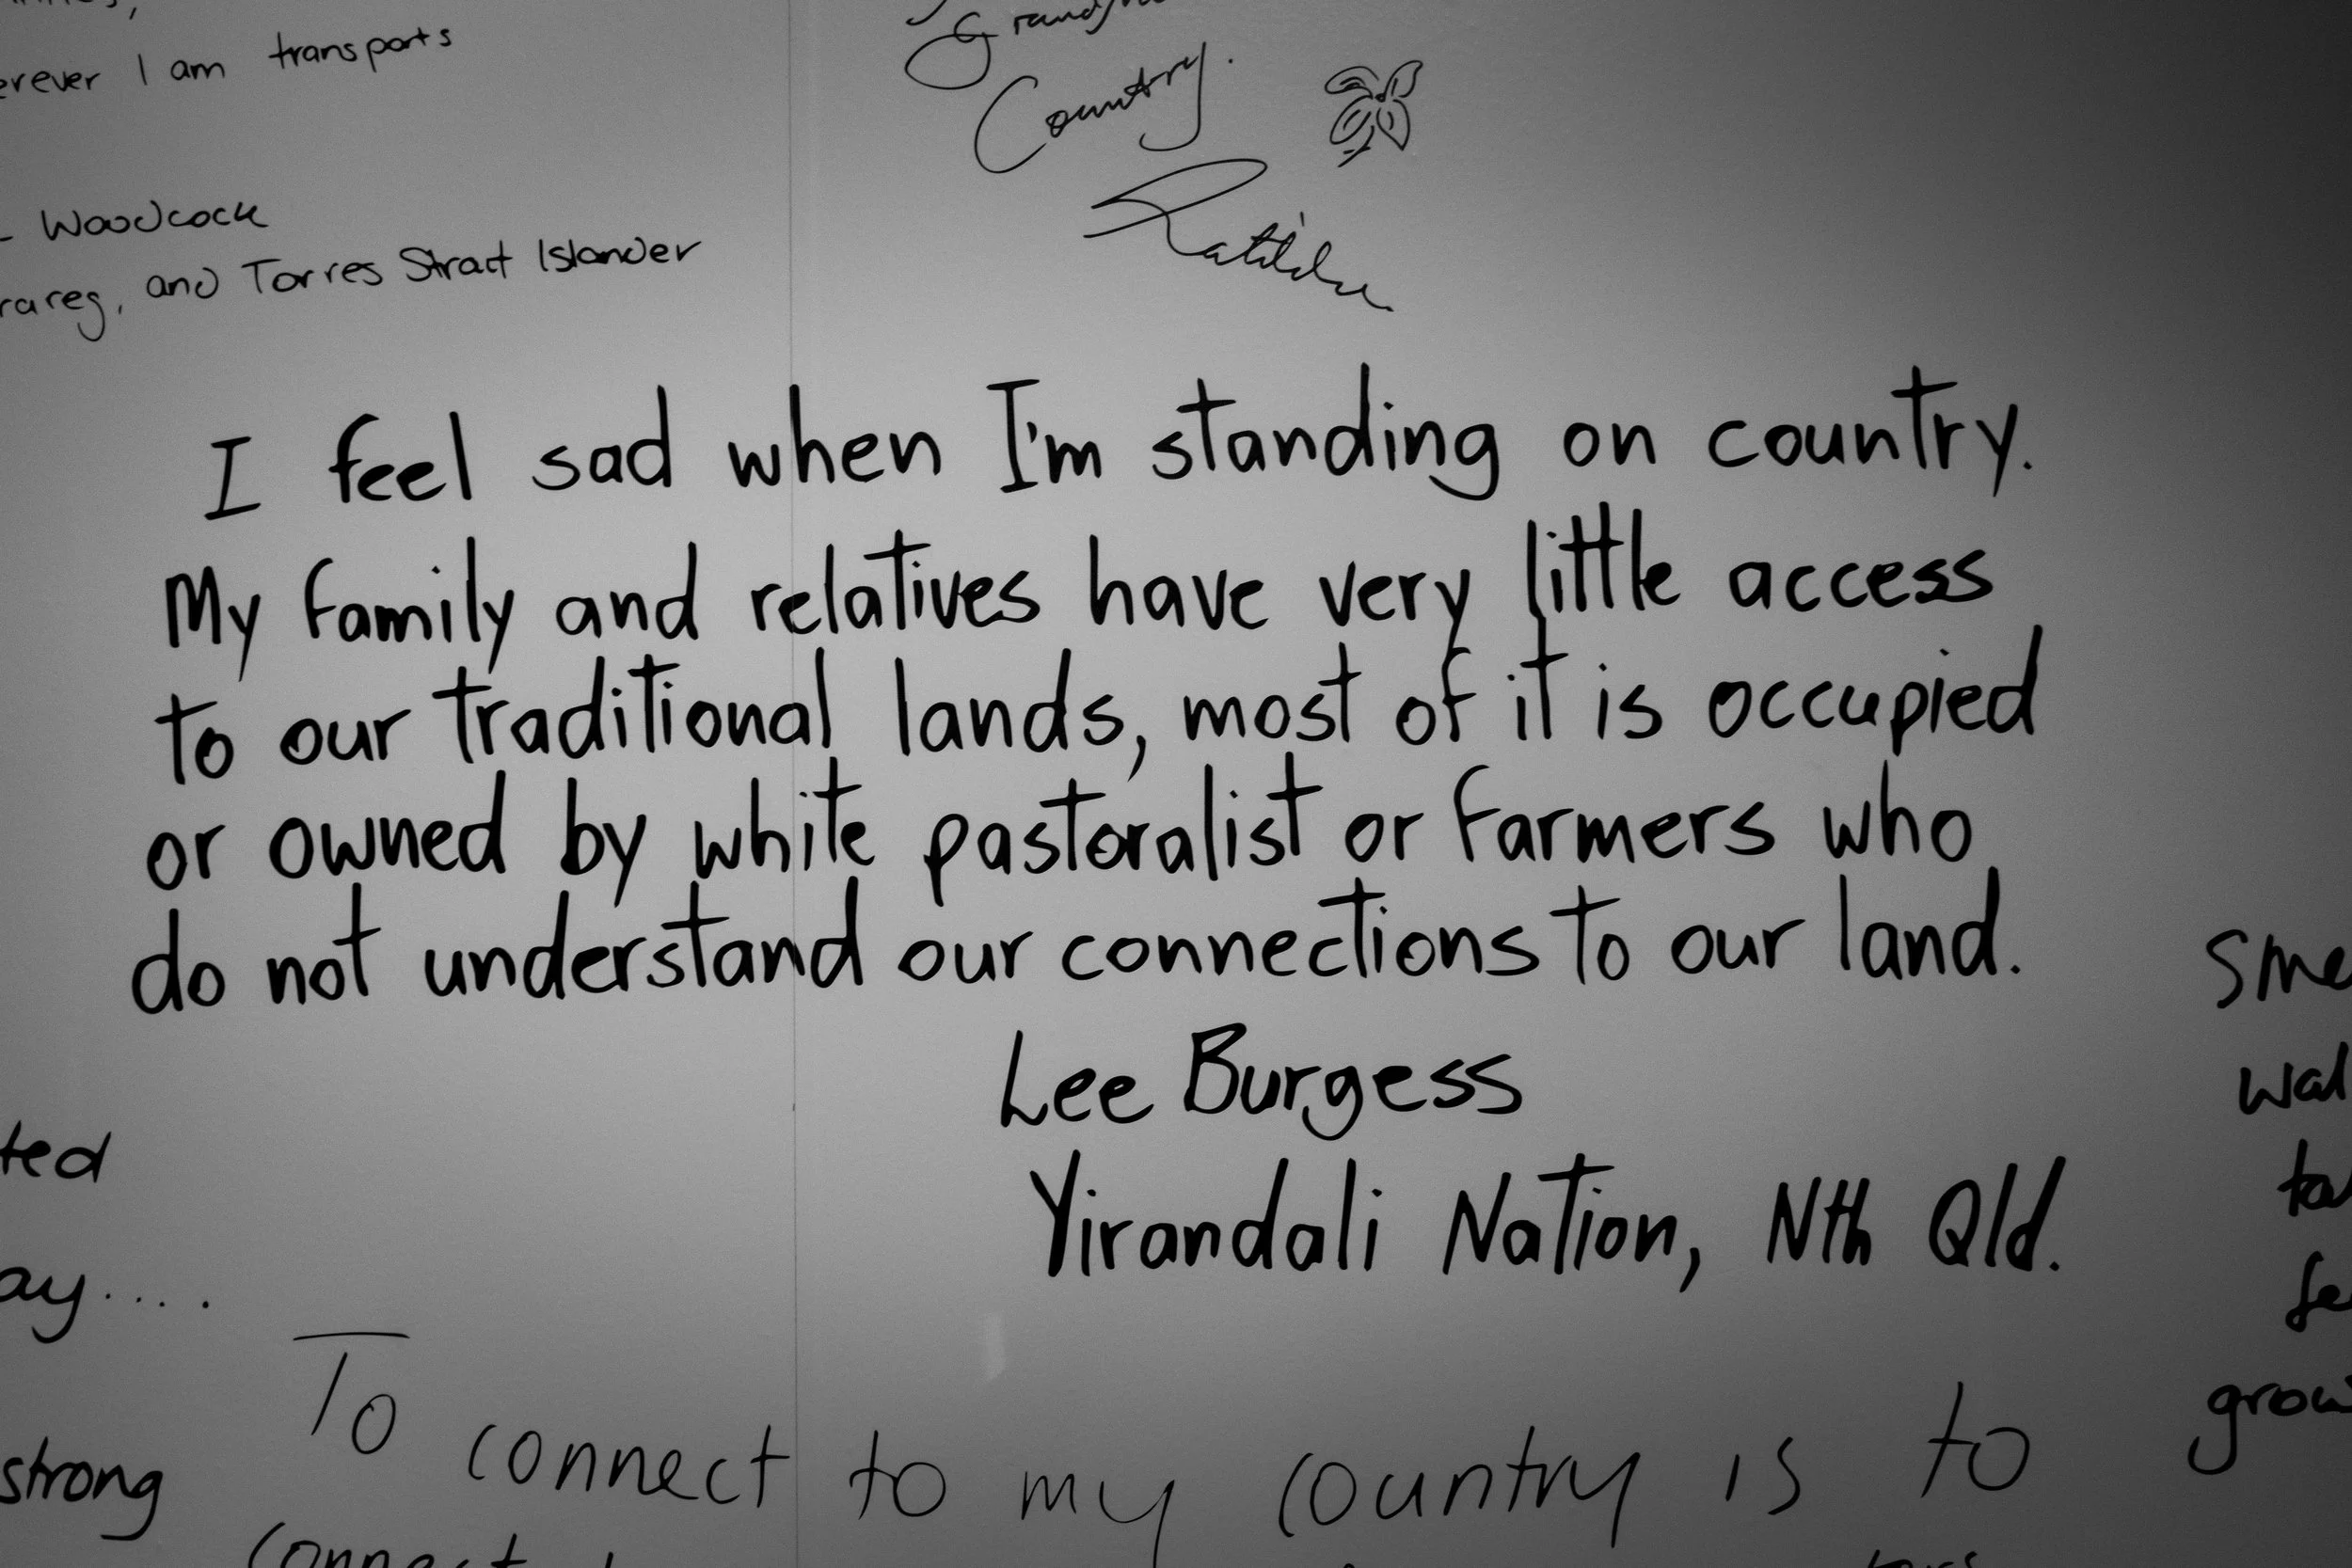 I am transports
Woodcock
and Torres Strait Islander
Country.
I feel sad when I'm standing on country.
My family and relatives have very little access
to our traditional lands, most of it is occupied
or owned by white pastoralist or farmers who
do not understand our connections to our land.
Lee Burgess
Yirandali Nation, Nth Qld.
strong
To connect to my country is to